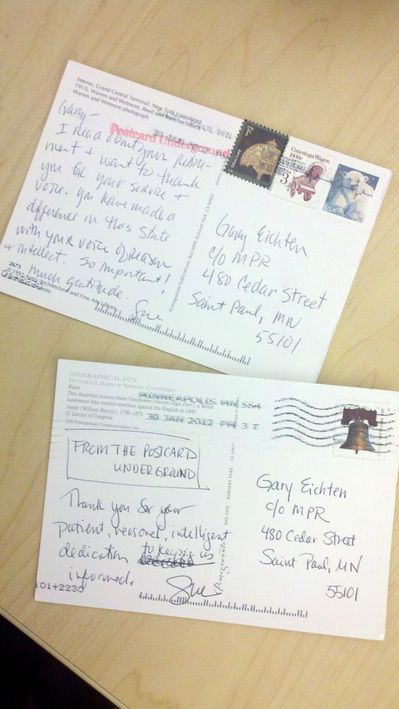 Interior, Grand Central Terminal, New York (completed
1913), Warren and Wetmore, Reed
Warren and Wetmore photograph
Postcard Underground
Gary-
I heard about your retire-
ment & want to thank
you for your service &
voice. You have made a
difference in this state
with your voice of reason
& intellect. So important!
Much gratitude.
Sue
Conestoga Wagon
1800s
3
Gary Eichten
c/o MPR
480 Cedar Street
Saint Paul, MN
55101
GEOGRAPHICAL FUN
HUMOROUS MAPS OF VARIOUS COUNTRIES
Wales
© Library of Congress
MINNEAPOLIS MN 554
30 JAN 2012 PM 3 T
FROM THE POSTCARD
UNDERGROUND
Thank you for your
patient, reasoned, intelligent
dedication to keeping us
informed.
Sue
101+2230
Gary Eichten
c/o MPR
480 Cedar Street
Saint Paul, MN
55101